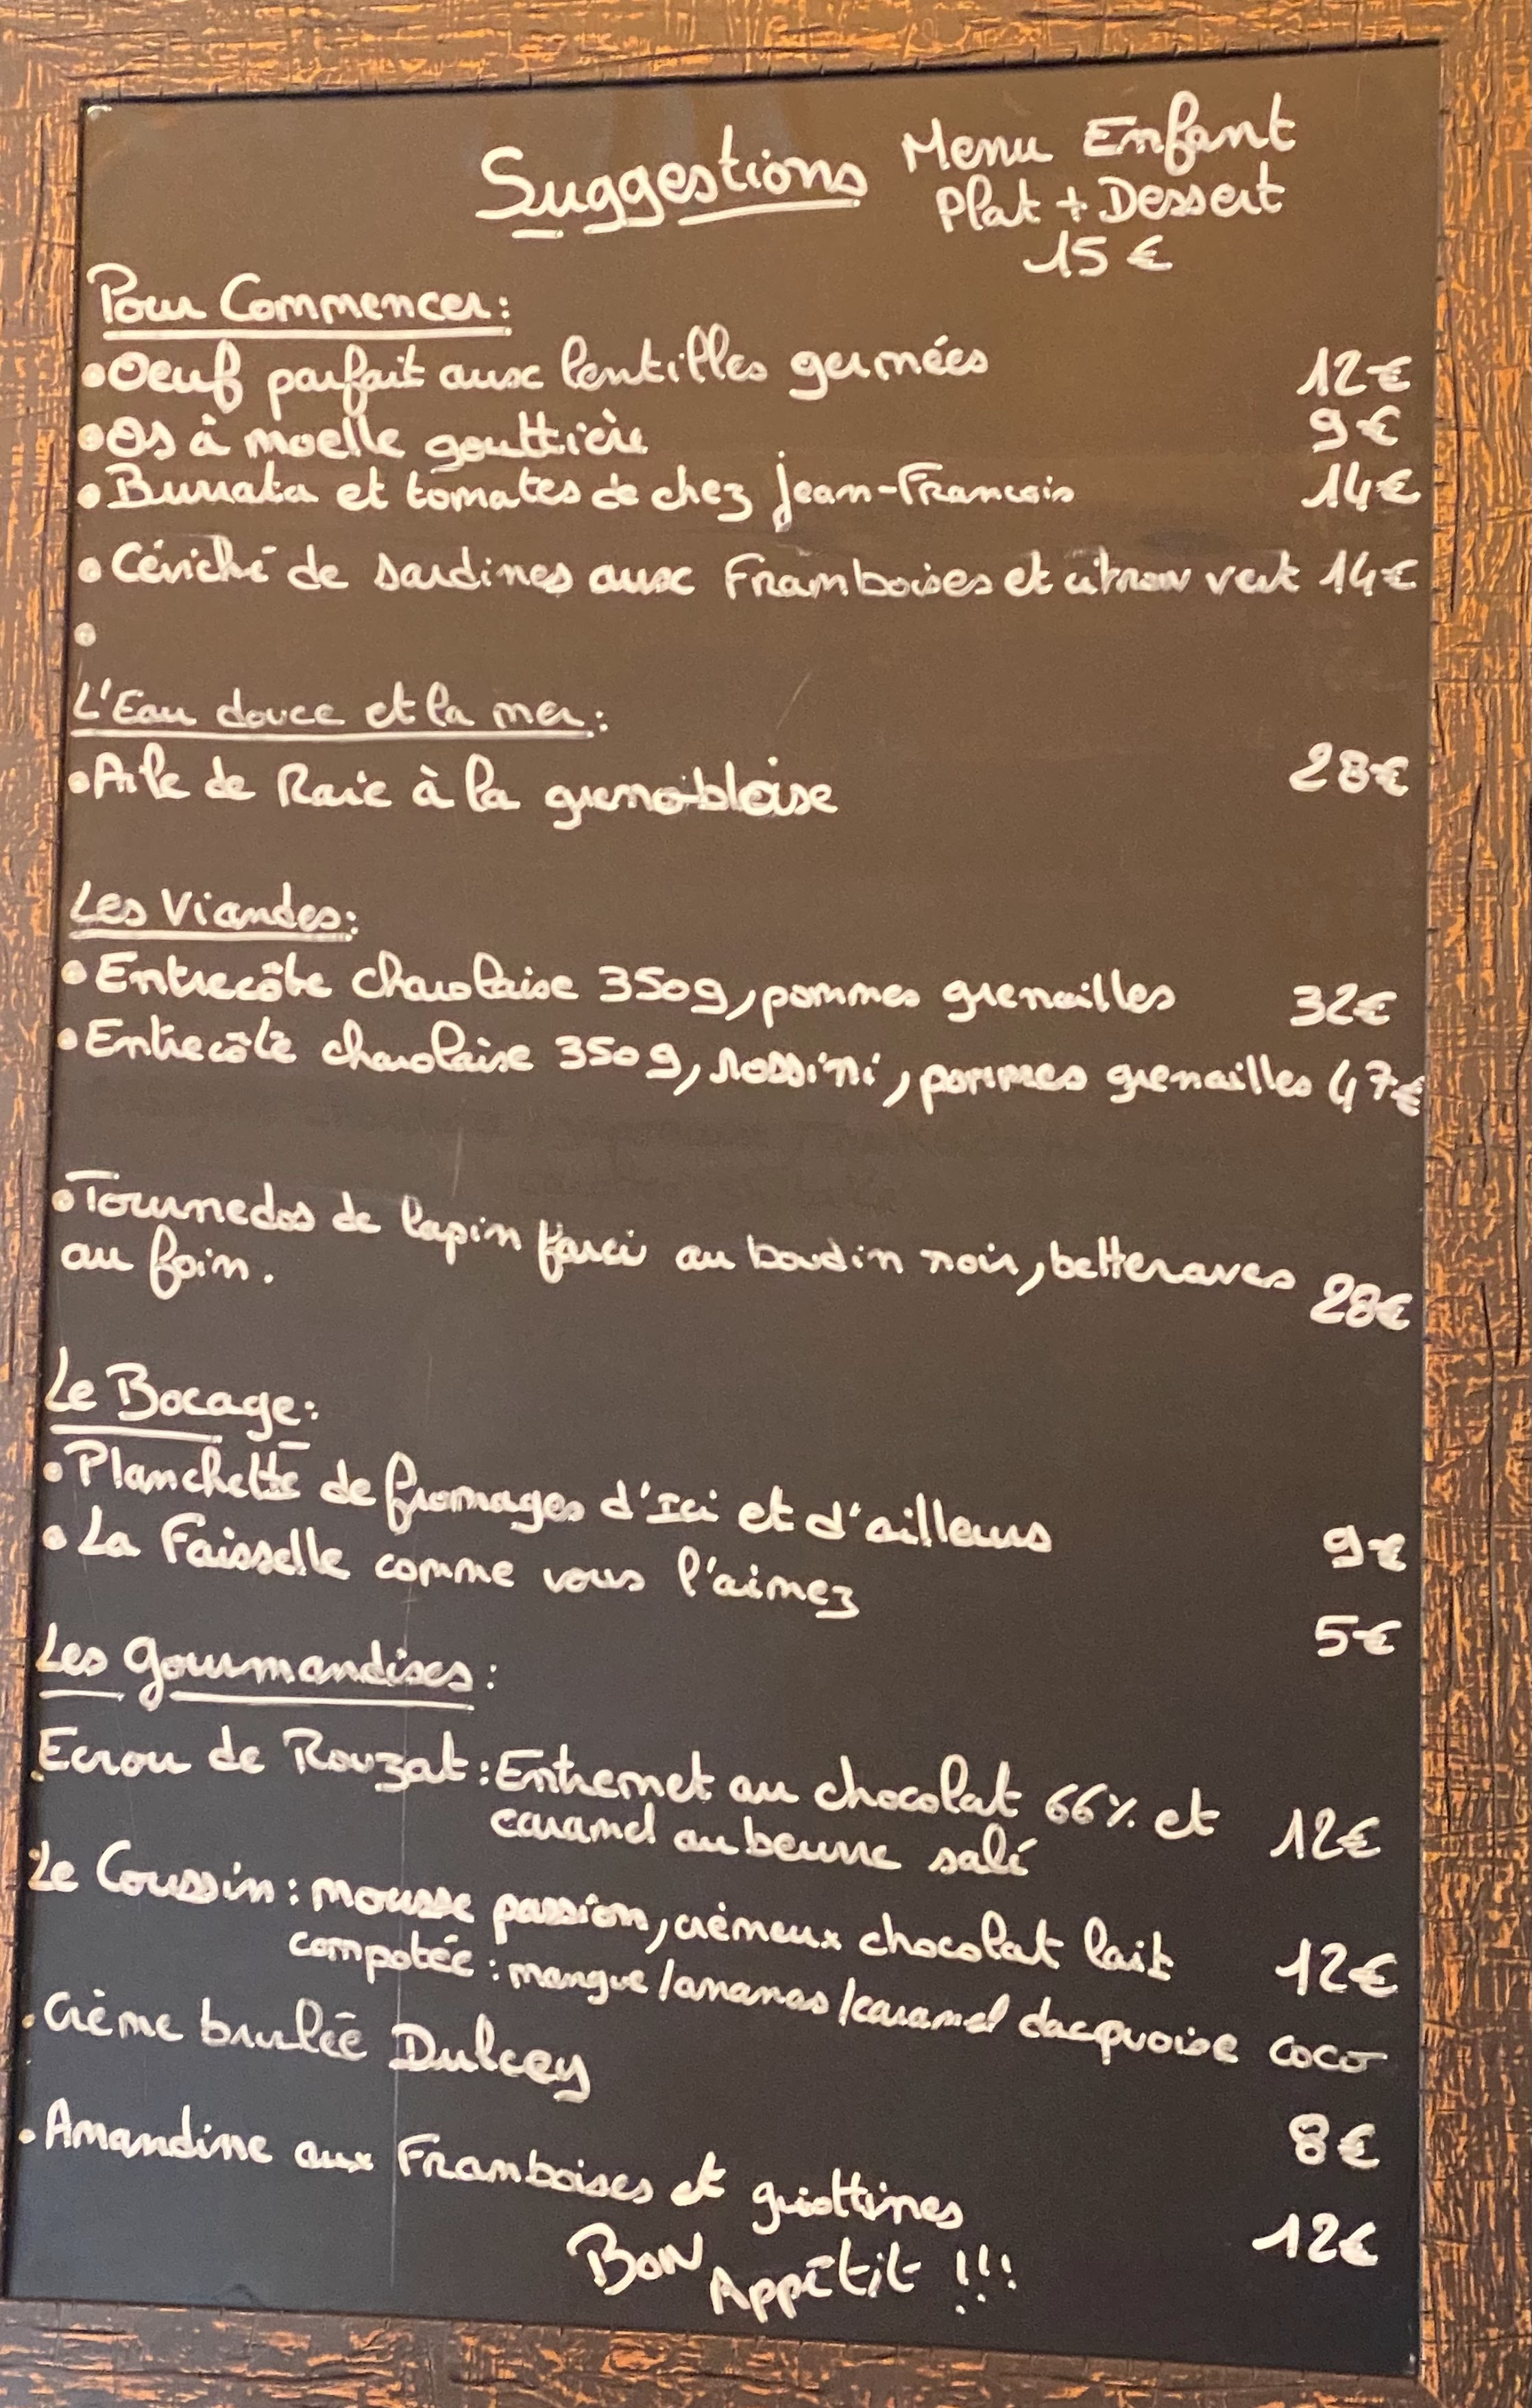 Suggestions
Menu Enfant
Plat + Dessert
15 €
Pour Commencer:
•Oeuf parfait aux lentilles germées 12€
•Os à moelle gouttière 9€
•Burrata et tomates de chez jean-Francois 14€
•Céviché de sardines aux Framboises et citron vert 14€
•
L'Eau douce et la mer:
•Aile de Raie à la grenobloise 28€
Les Viandes:
•Entrecôte charolaise 350g, pommes grenailles 32€
•Entrecôte charolaise 350g, rossini, pommes grenailles 47€
•Tournedos de lapin farci au boudin noir, betteraves
au foin. 28€
Le Bocage:
•Planchette de fromages d'Ici et d'ailleurs 9€
•La Faisselle comme vous l'aimez 5€
Les Gourmandises:
Ecrou de Rouzat: Entremet au chocolat 66% et 12€
caramel au beurre salé
Le Coussin: mousse passion, crémeux chocolat lait 12€
compotée: mangue/ananas/caramel dacquoise coco
•Crème brulée Dulcey 8€
•Amandine aux Framboises et griottines 12€
Bon Appétit !!!